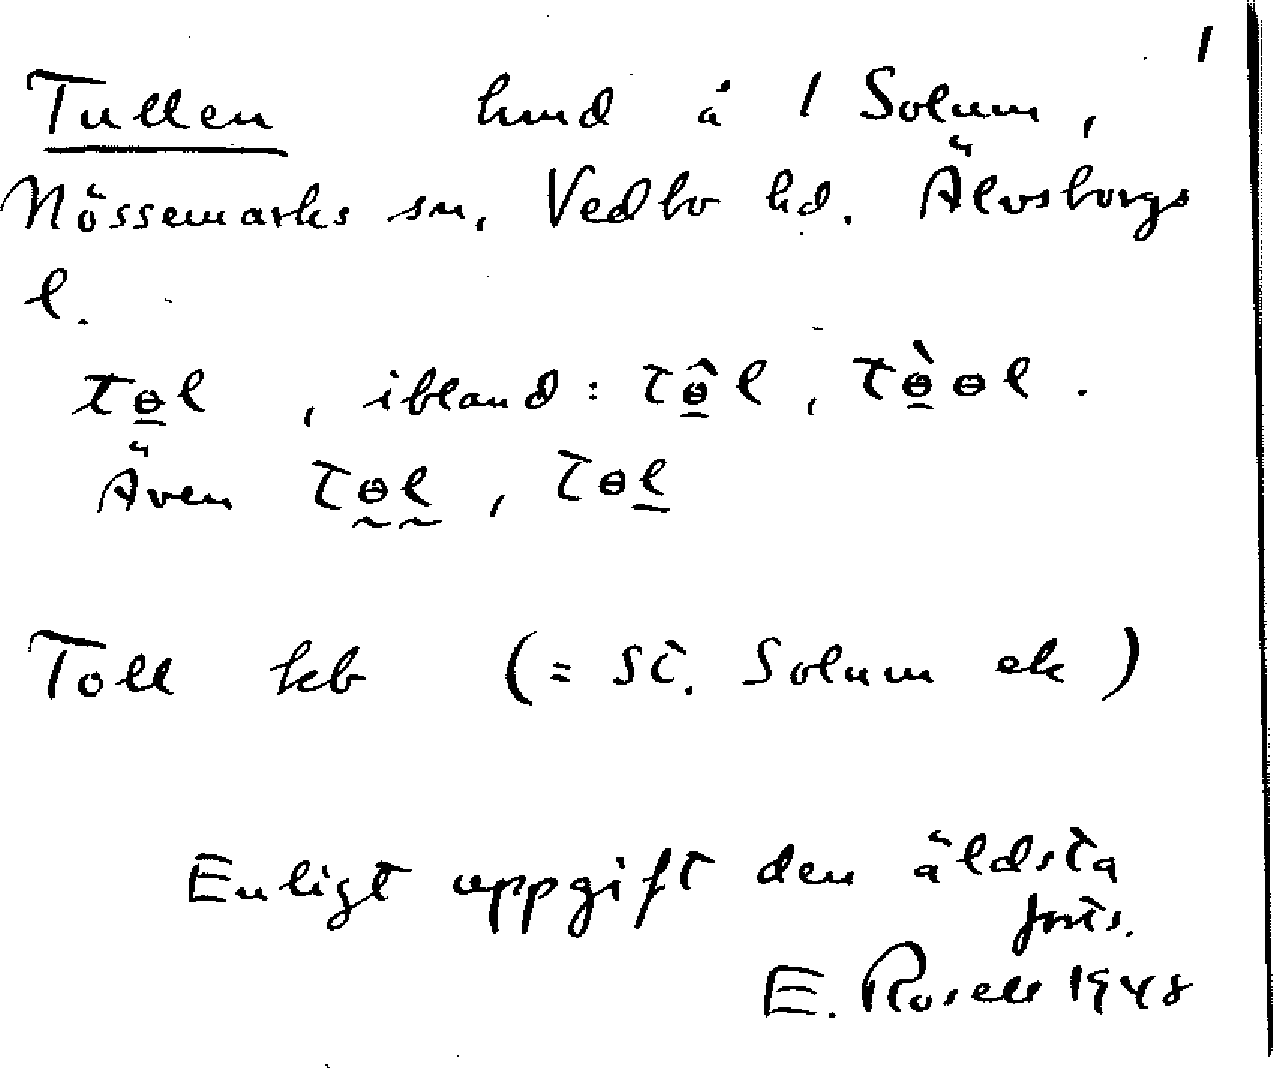 1
Tullen hmd å 1 Solum,
Nössemarks sn, Vedbo hd. Älvsborgs
l.
tɵl, ibland: tɵ̂l, tɵ̀ɵl.
Även tɵl, tɵl
Toll kb (= st. Solum ek)
Enligt uppgift den äldsta
E. Rosell 1948